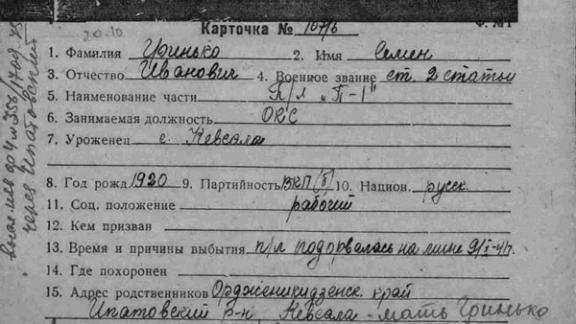 20.10
Карточка № 1071б
Ф. №1
1. Фамилия Гринько 2. Имя Семен
3. Отчество Иванович 4. Военное звание ст. 2 статьи
5. Наименование части П/л „П-1"
6. Занимаемая должность ОКС
7. Уроженец с. Кевсала
8. Год рожд 1920 9. Партийность ВКП(б) 10. Национ. русск.
11. Соц. положение рабочий
12. Кем призван
13. Время и причины выбытия п/л подорвалась на мине
14. Где похоронен
15. Адрес родственников Орджоникидзенск. край
Ипатовский р-н, Кевсала - мать Гринько
через Ипатовский